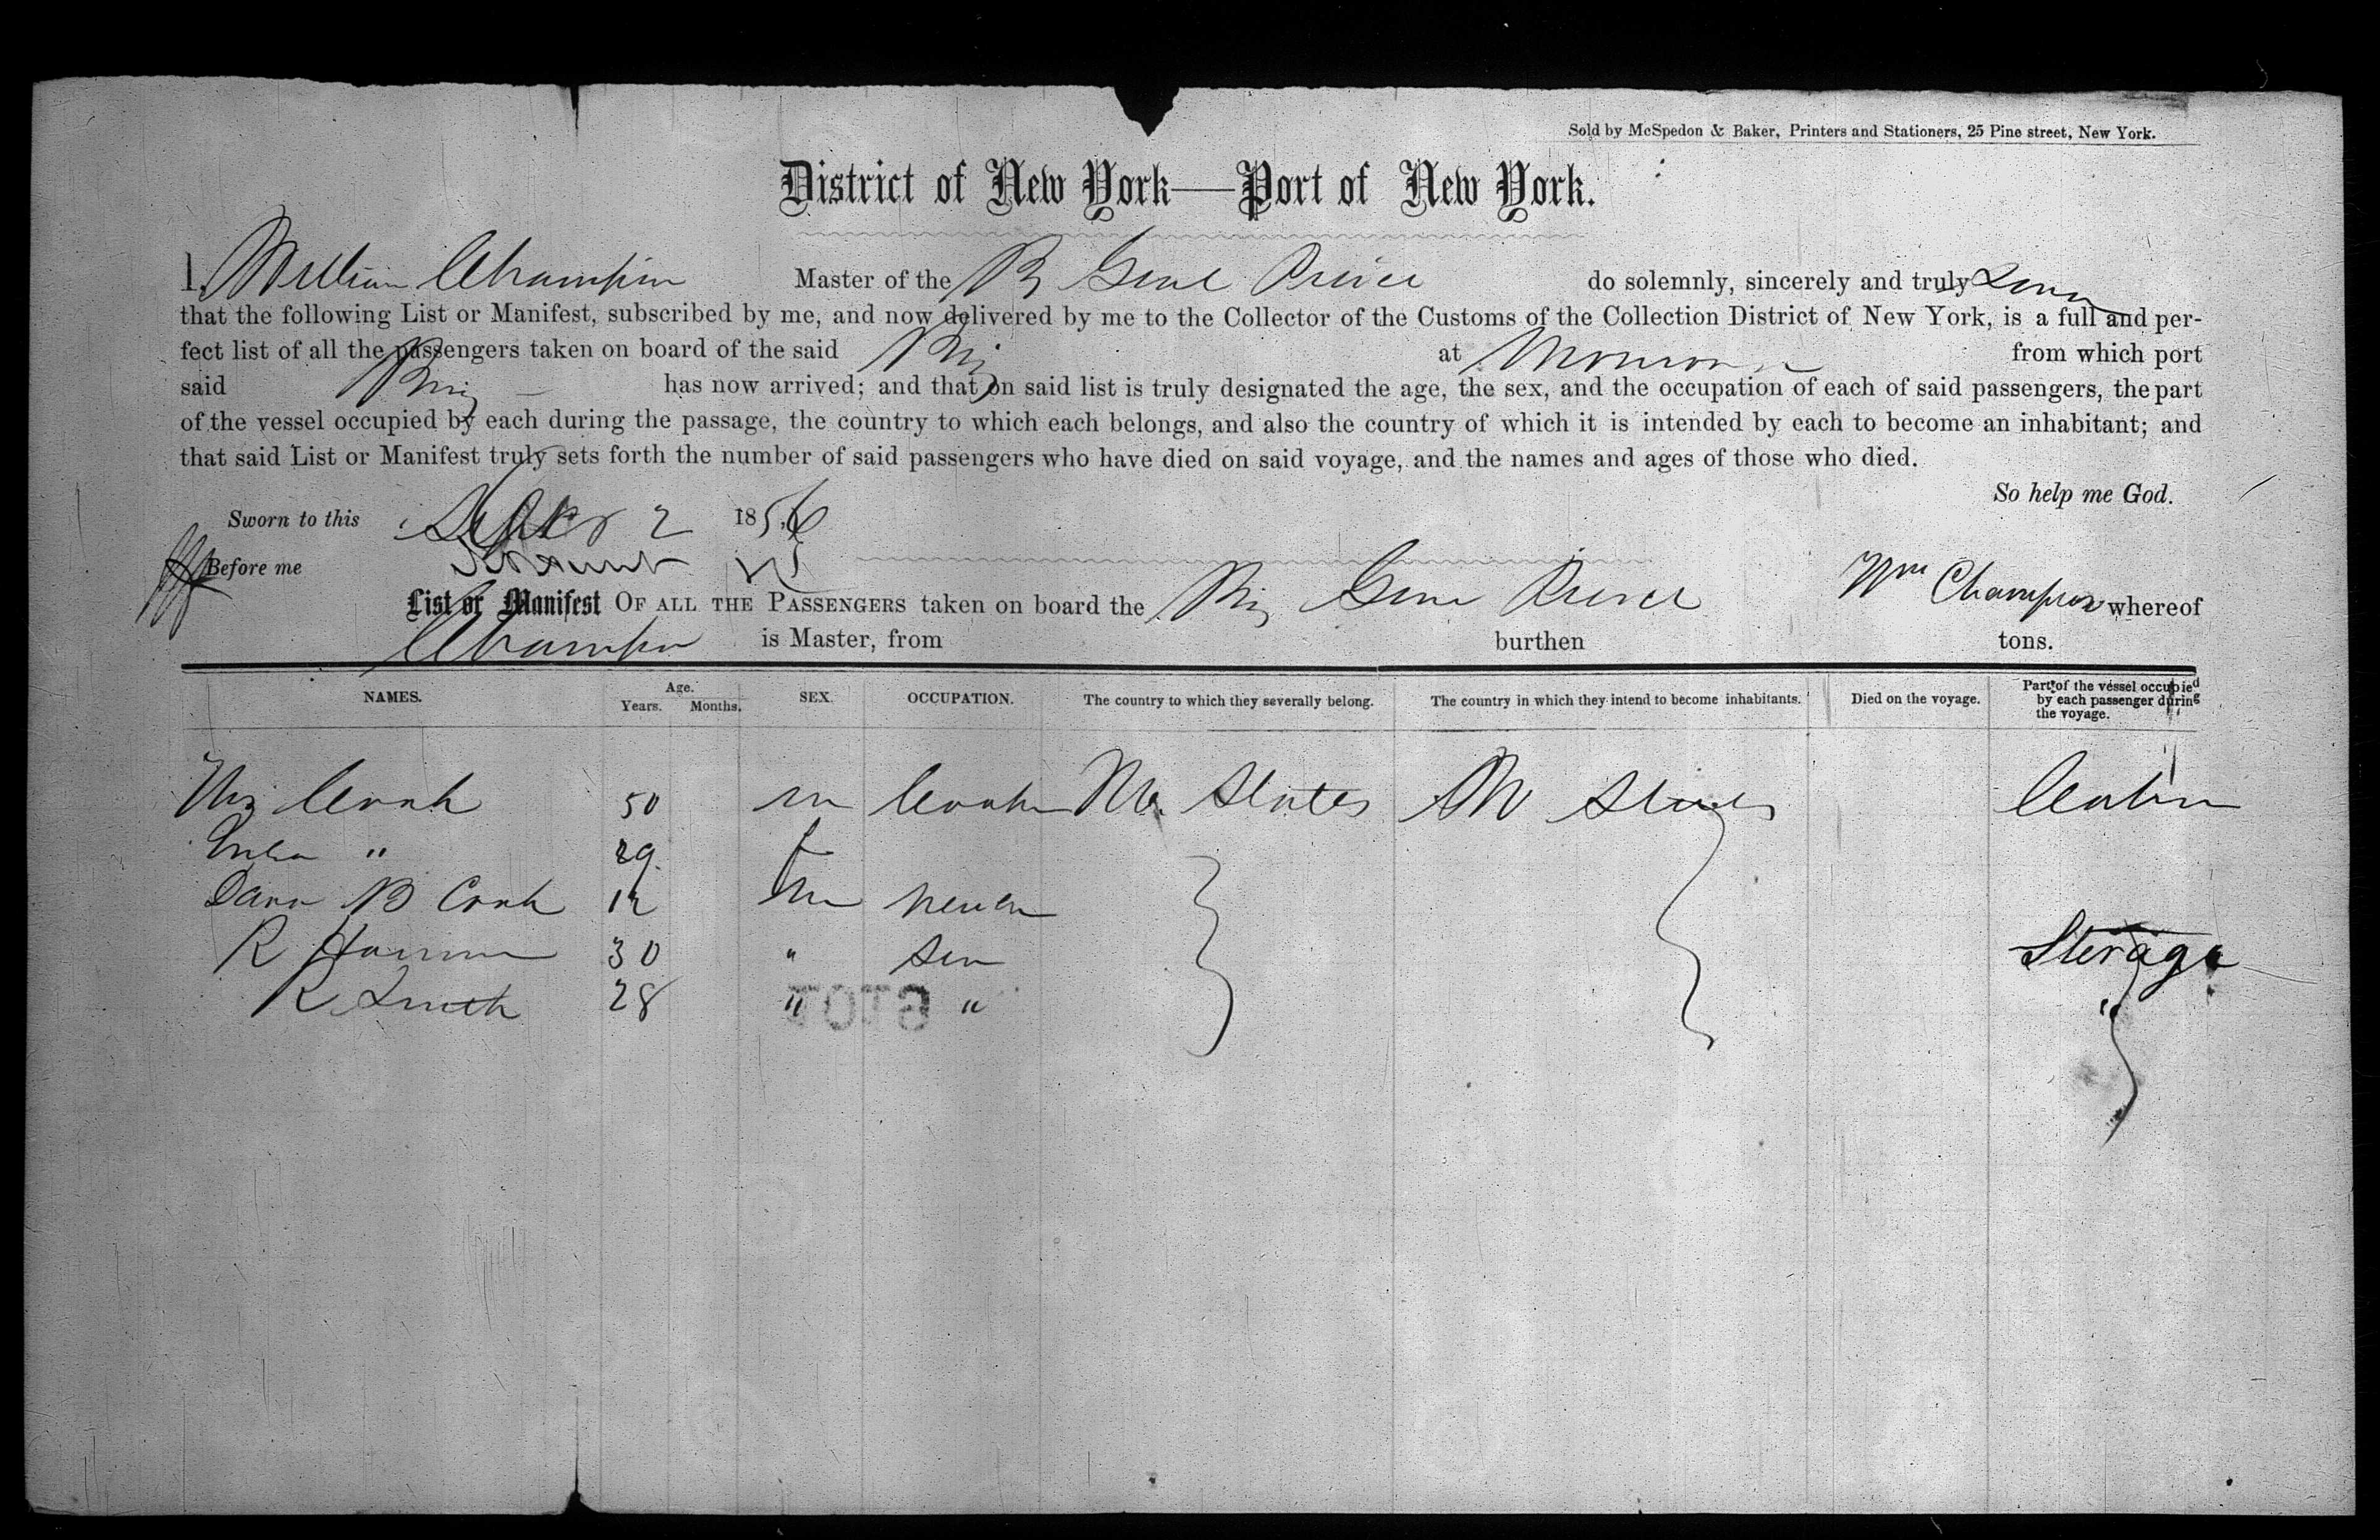 Sold by McSpedon & Baker, Printers and Stationers, 25 Pine street, New York.
District of New York—Port of New York.
I, William Champion Master of the B Genl Pierce do solemnly, sincerely and truly
that the following List or Manifest, subscribed by me, and now delivered by me to the Collector of the Customs of the Collection District of New York, is a full and per-
fect list of all the passengers taken on board of the said Brig at from which port
said Brig has now arrived; and that on said list is truly designated the age, the sex, and the occupation of each of said passengers, the part
of the vessel occupied by each during the passage, the country to which each belongs, and also the country of which it is intended by each to become an inhabitant; and
that said List or Manifest truly sets forth the number of said passengers who have died on said voyage, and the names and ages of those who died.
So help me God.
Sworn to this Septr 2 1856
Before me
List or Manifest OF ALL THE PASSENGERS taken on board the Brig Genl Pierce Wm Champion whereof
Champion is Master, from burthen tons.
NAMES. Age. Years. Months. SEX. OCCUPATION. The country to which they severally belong. The country in which they intend to become inhabitants. Died on the voyage. Part of the vessel occupied by each passenger during the voyage.
Cook 50 m States States Cabin
" 29 f
B Cook 12 m
R 30 "
R Smith 28 " "
Sterage
"